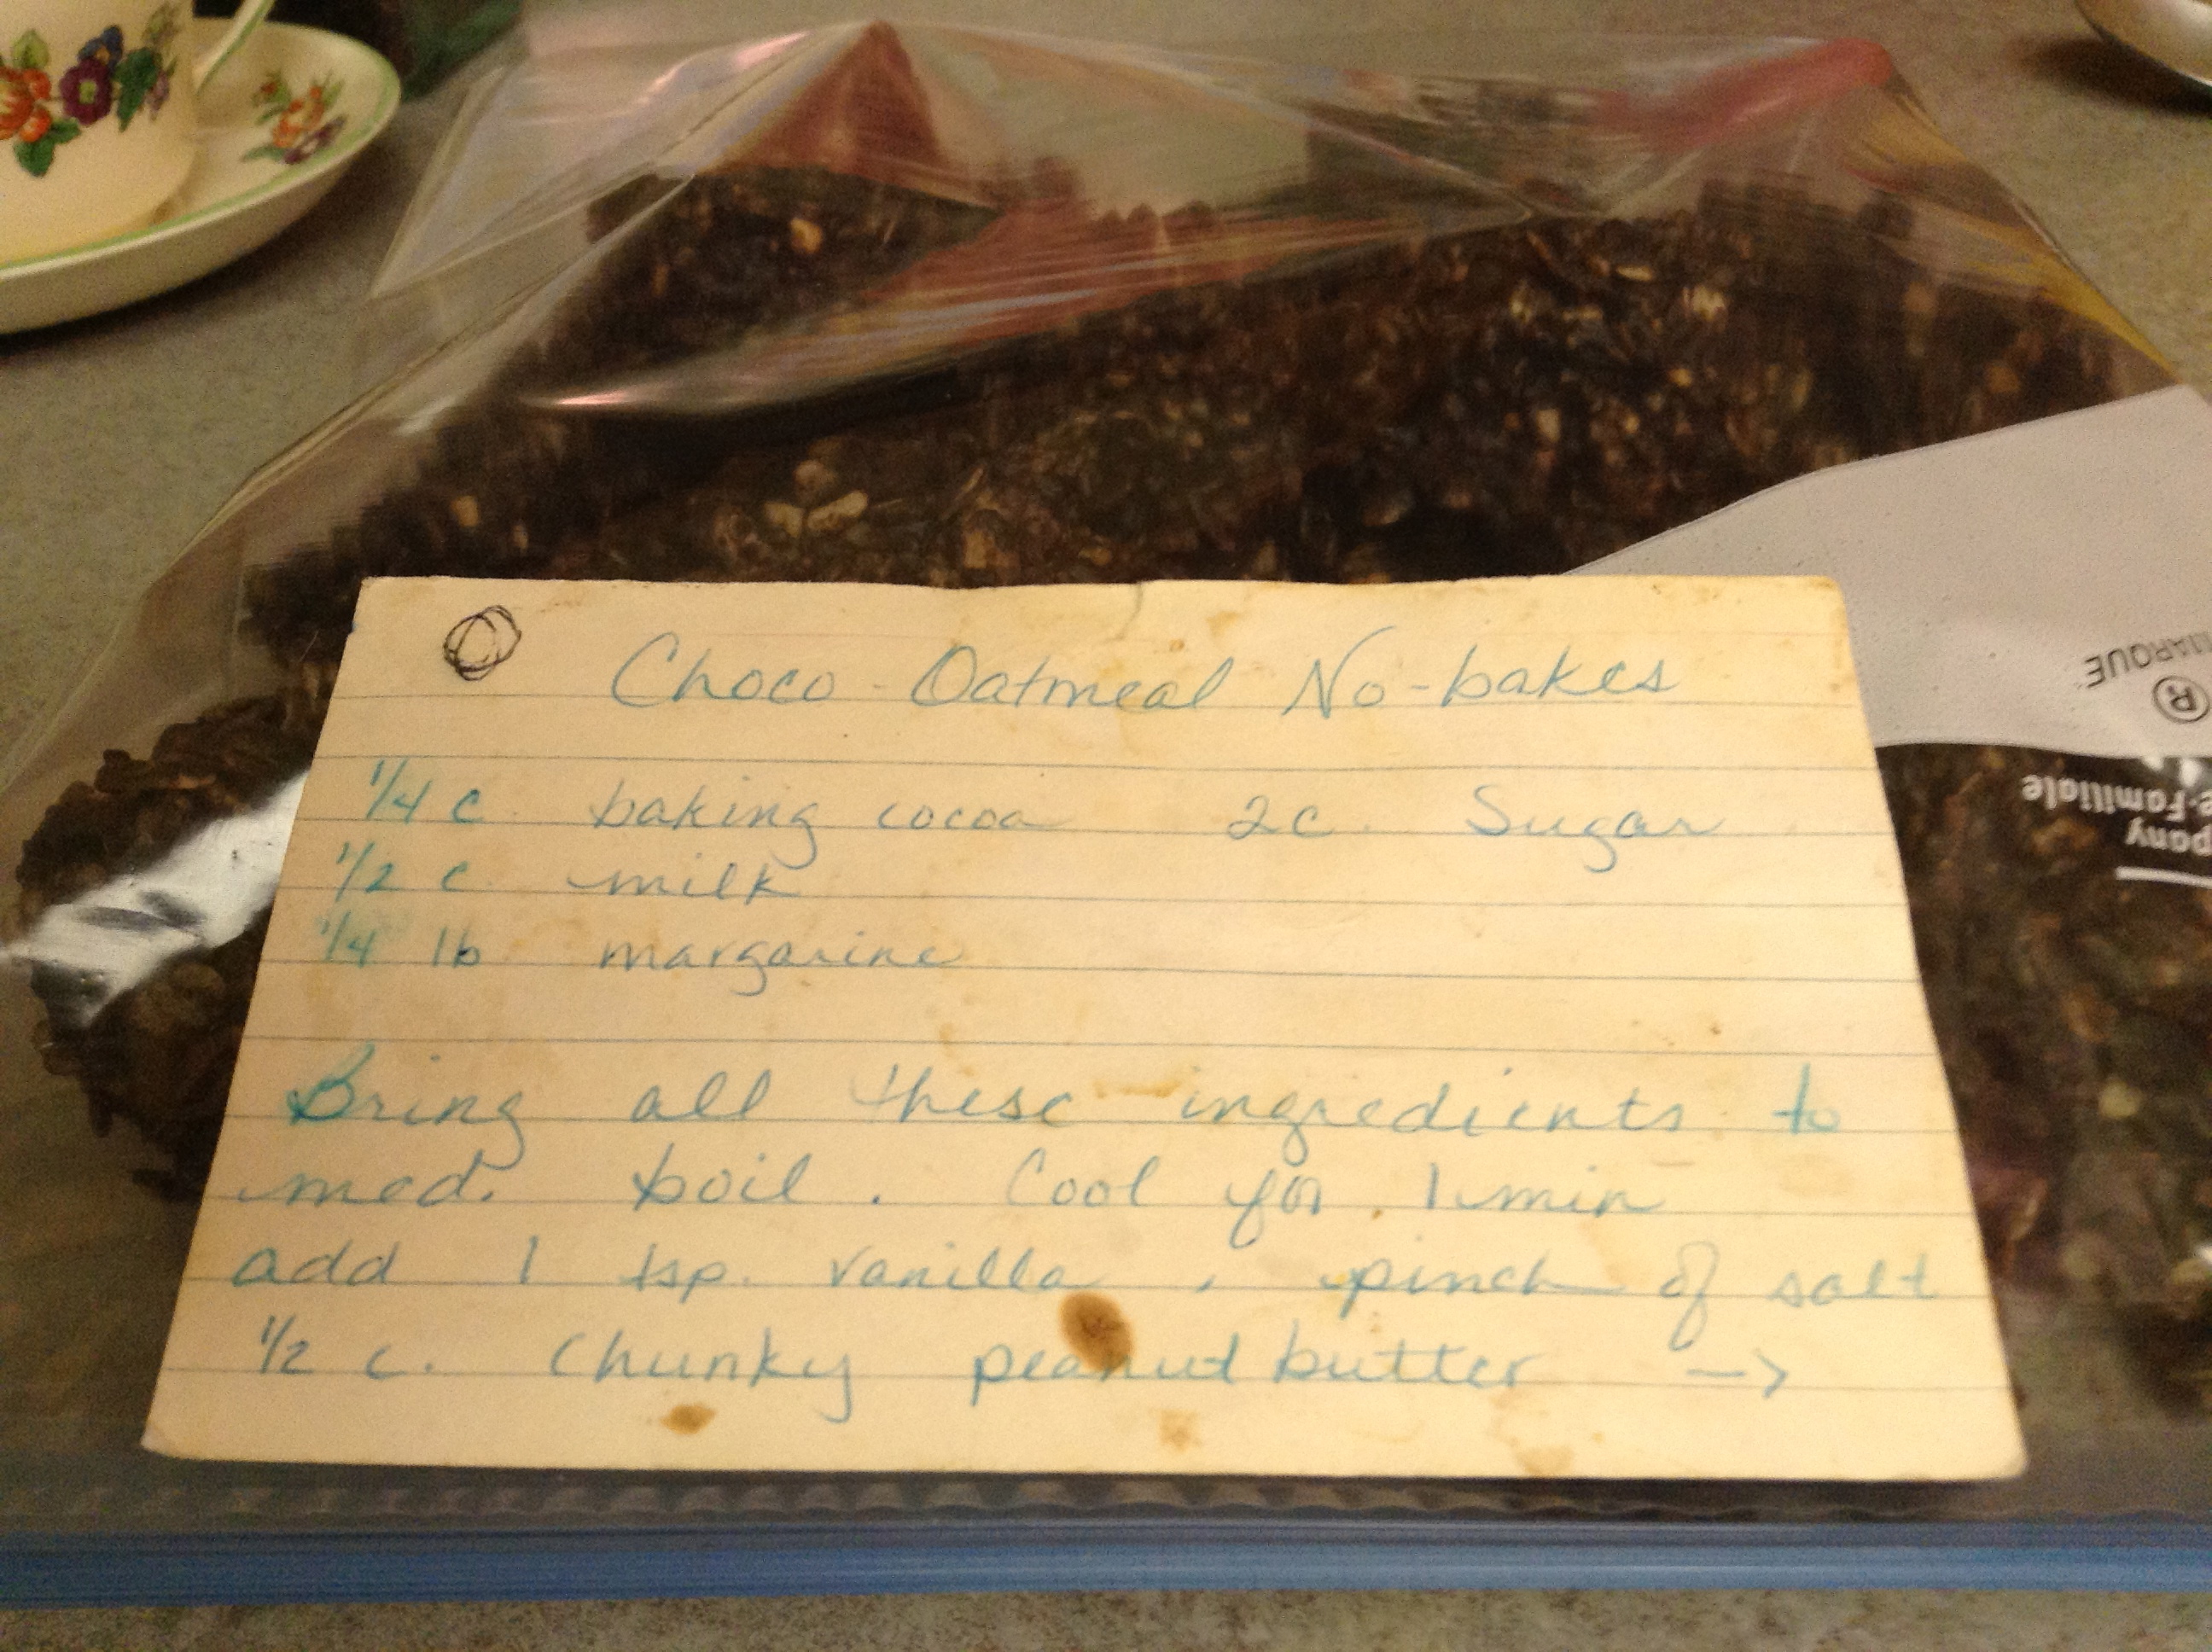 Choco-Oatmeal No-bakes
1/4 c. baking cocoa 2c. Sugar
1/2 c. milk
1/4 lb margarine
Bring all these ingredients to
med. boil. Cool for 1 min
add 1 tsp. vanilla, pinch of salt
1/2 c. Chunky peanut butter ->
®